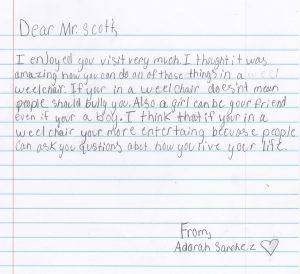 Dear Mr. Scott,
I enjoyed you visit very much. I thought it was
amazing how you can do all of those things in a weel
weelchair. If your in a weelchair does'nt mean
people should bully you. Also a girl can be your friend
even if your a boy. I think that if your in a
weelchair your more entertaing becuase people
can ask you qustions abut how you live your life.
From,
Adarah Sanchez